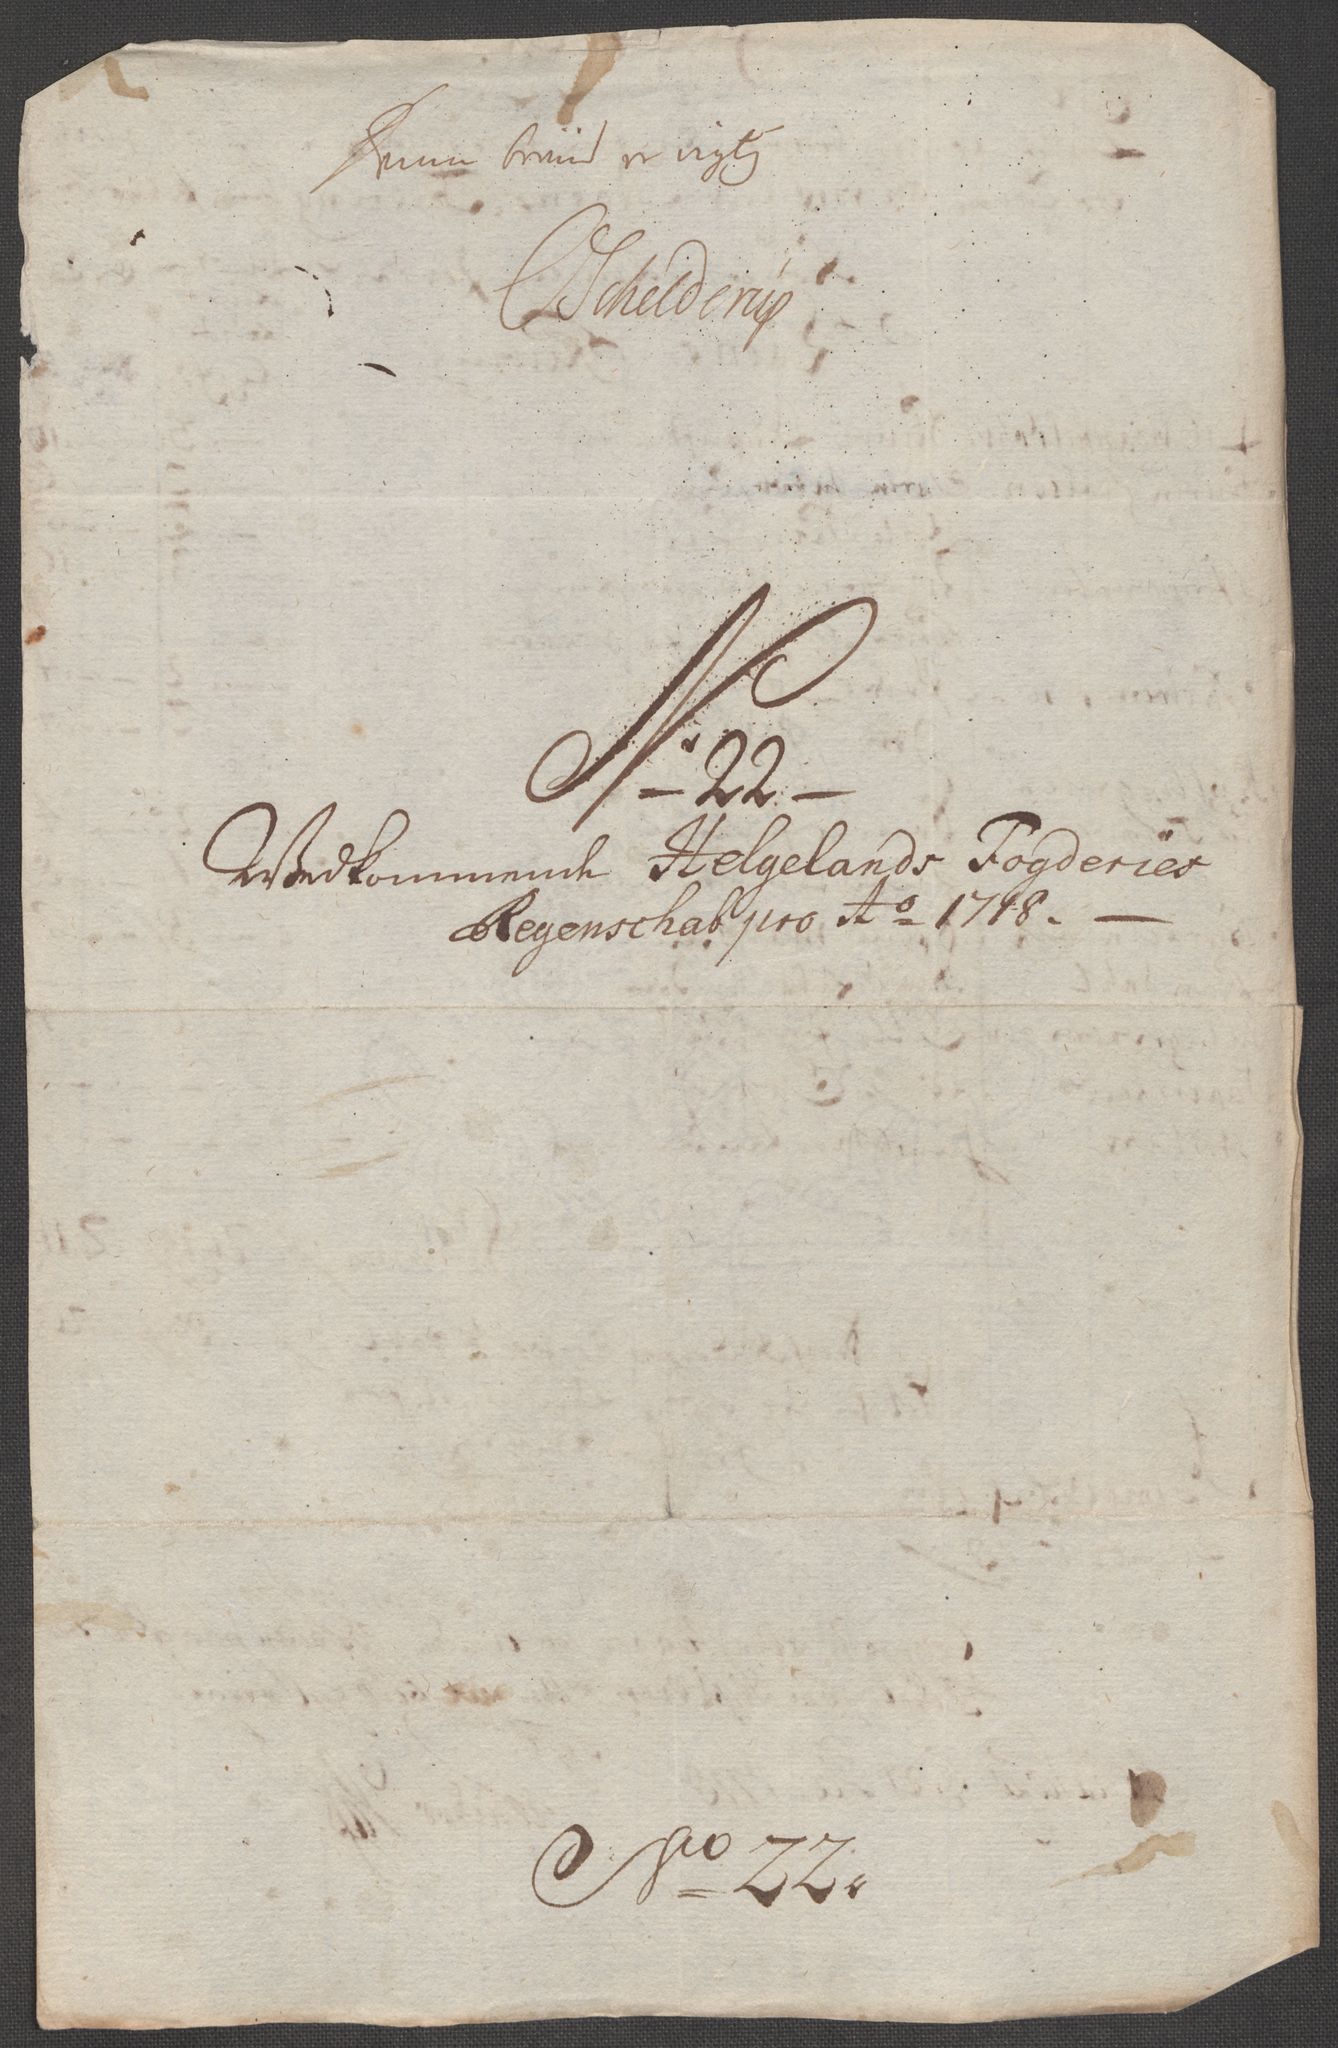 er rigtig
Schelderup
N: 22
Vedkommende Helgelands Fogderies
Regenschab pro Ao 1718.
No 22.